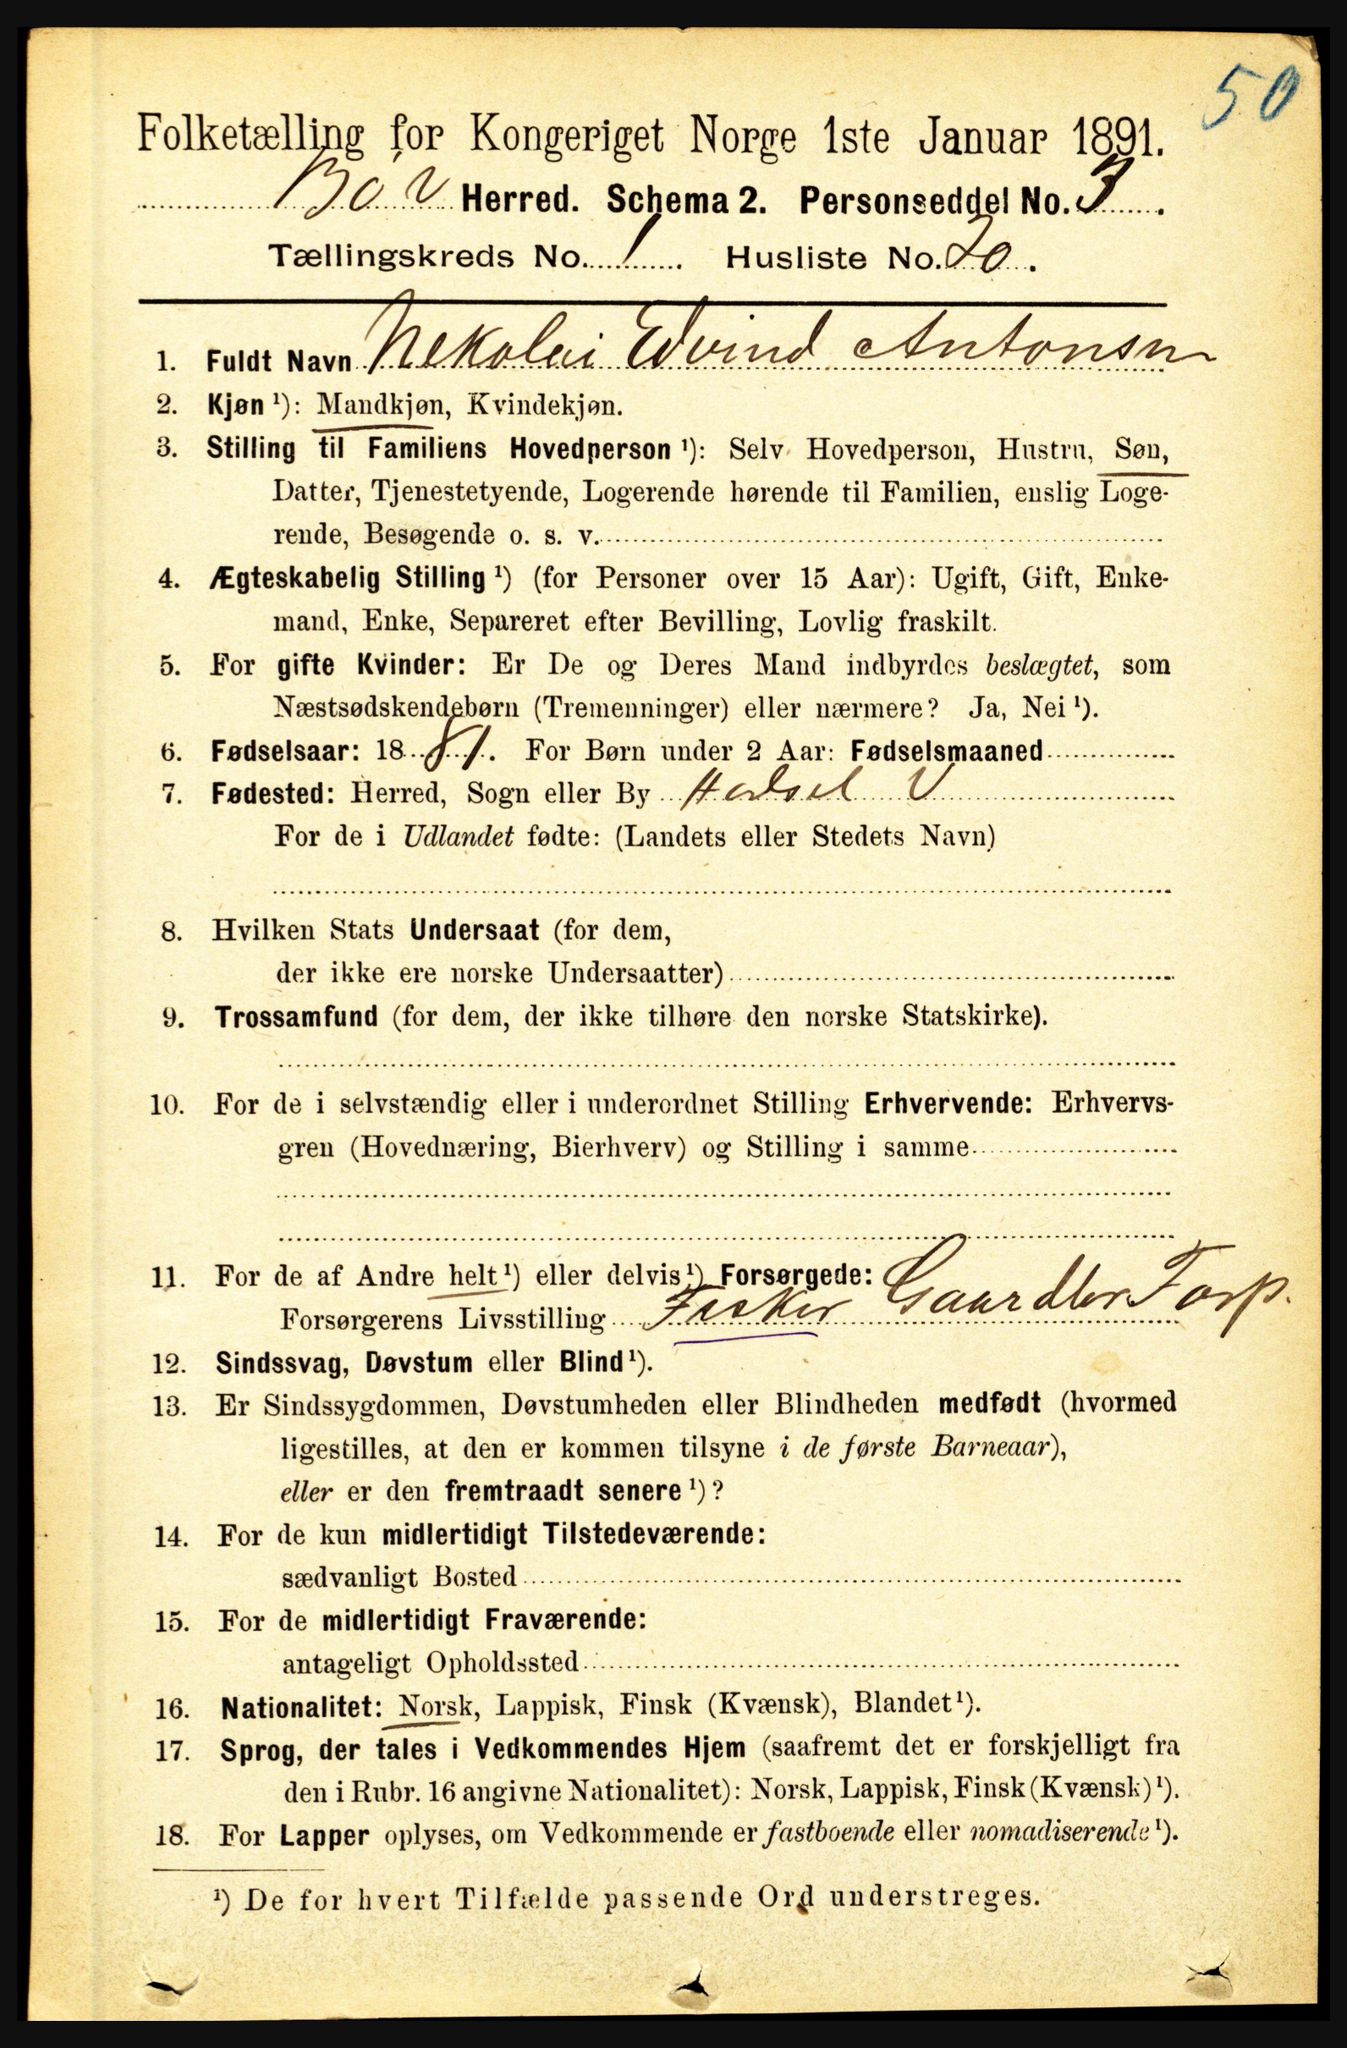 50
Folketælling for Kongeriget Norge 1ste Januar 1891.
Bö V Herred. Schema 2. Personseddel No. 3.
Tællingskreds No. 1. Husliste No. 20.
1. Fuldt Navn Nekolai Edvind Antonsn
2. Kjøn ¹): Mandkjøn, Kvindekjøn.
3. Stilling til Familiens Hovedperson ¹): Selv Hovedperson, Hustru, Søn,
Datter, Tjenestetyende, Logerende hørende til Familien, enslig Loge-
rende, Besøgende o. s. v.
4. Ægteskabelig Stilling ¹) (for Personer over 15 Aar): Ugift, Gift, Enke-
mand, Enke, Separeret efter Bevilling, Lovlig fraskilt.
5. For gifte Kvinder: Er De og Deres Mand indbyrdes beslægtet, som
Næstsødskendebørn (Tremenninger) eller nærmere? Ja, Nei ¹).
6. Fødselsaar: 1881. For Børn under 2 Aar: Fødselsmaaned
7. Fødested: Herred, Sogn eller By Hadsel V
For de i Udlandet fødte: (Landets eller Stedets Navn)
8. Hvilken Stats Undersaat (for dem,
der ikke ere norske Undersaatter)
9. Trossamfund (for dem, der ikke tilhøre den norske Statskirke).
10. For de i selvstændig eller i underordnet Stilling Erhvervende: Erhvervs-
gren (Hovednæring, Bierhverv) og Stilling i samme
11. For de af Andre helt ¹) eller delvis ¹) Forsørgede:
Forsørgerens Livsstilling Fisker Gaardbr Forp.
12. Sindssvag, Døvstum eller Blind ¹).
13. Er Sindssygdommen, Døvstumheden eller Blindheden medfødt (hvormed
ligestilles, at den er kommen tilsyne i de første Barneaar),
eller er den fremtraadt senere ¹)?
14. For de kun midlertidigt Tilstedeværende:
sædvanligt Bosted
15. For de midlertidigt Fraværende:
antageligt Opholdssted
16. Nationalitet: Norsk, Lappisk, Finsk (Kvænsk), Blandet ¹).
17. Sprog, der tales i Vedkommendes Hjem (saafremt det er forskjelligt fra
den i Rubr. 16 angivne Nationalitet): Norsk, Lappisk, Finsk (Kvænsk) ¹).
18. For Lapper oplyses, om Vedkommende er fastboende eller nomadiserende ¹).
¹) De for hvert Tilfælde passende Ord understreges.